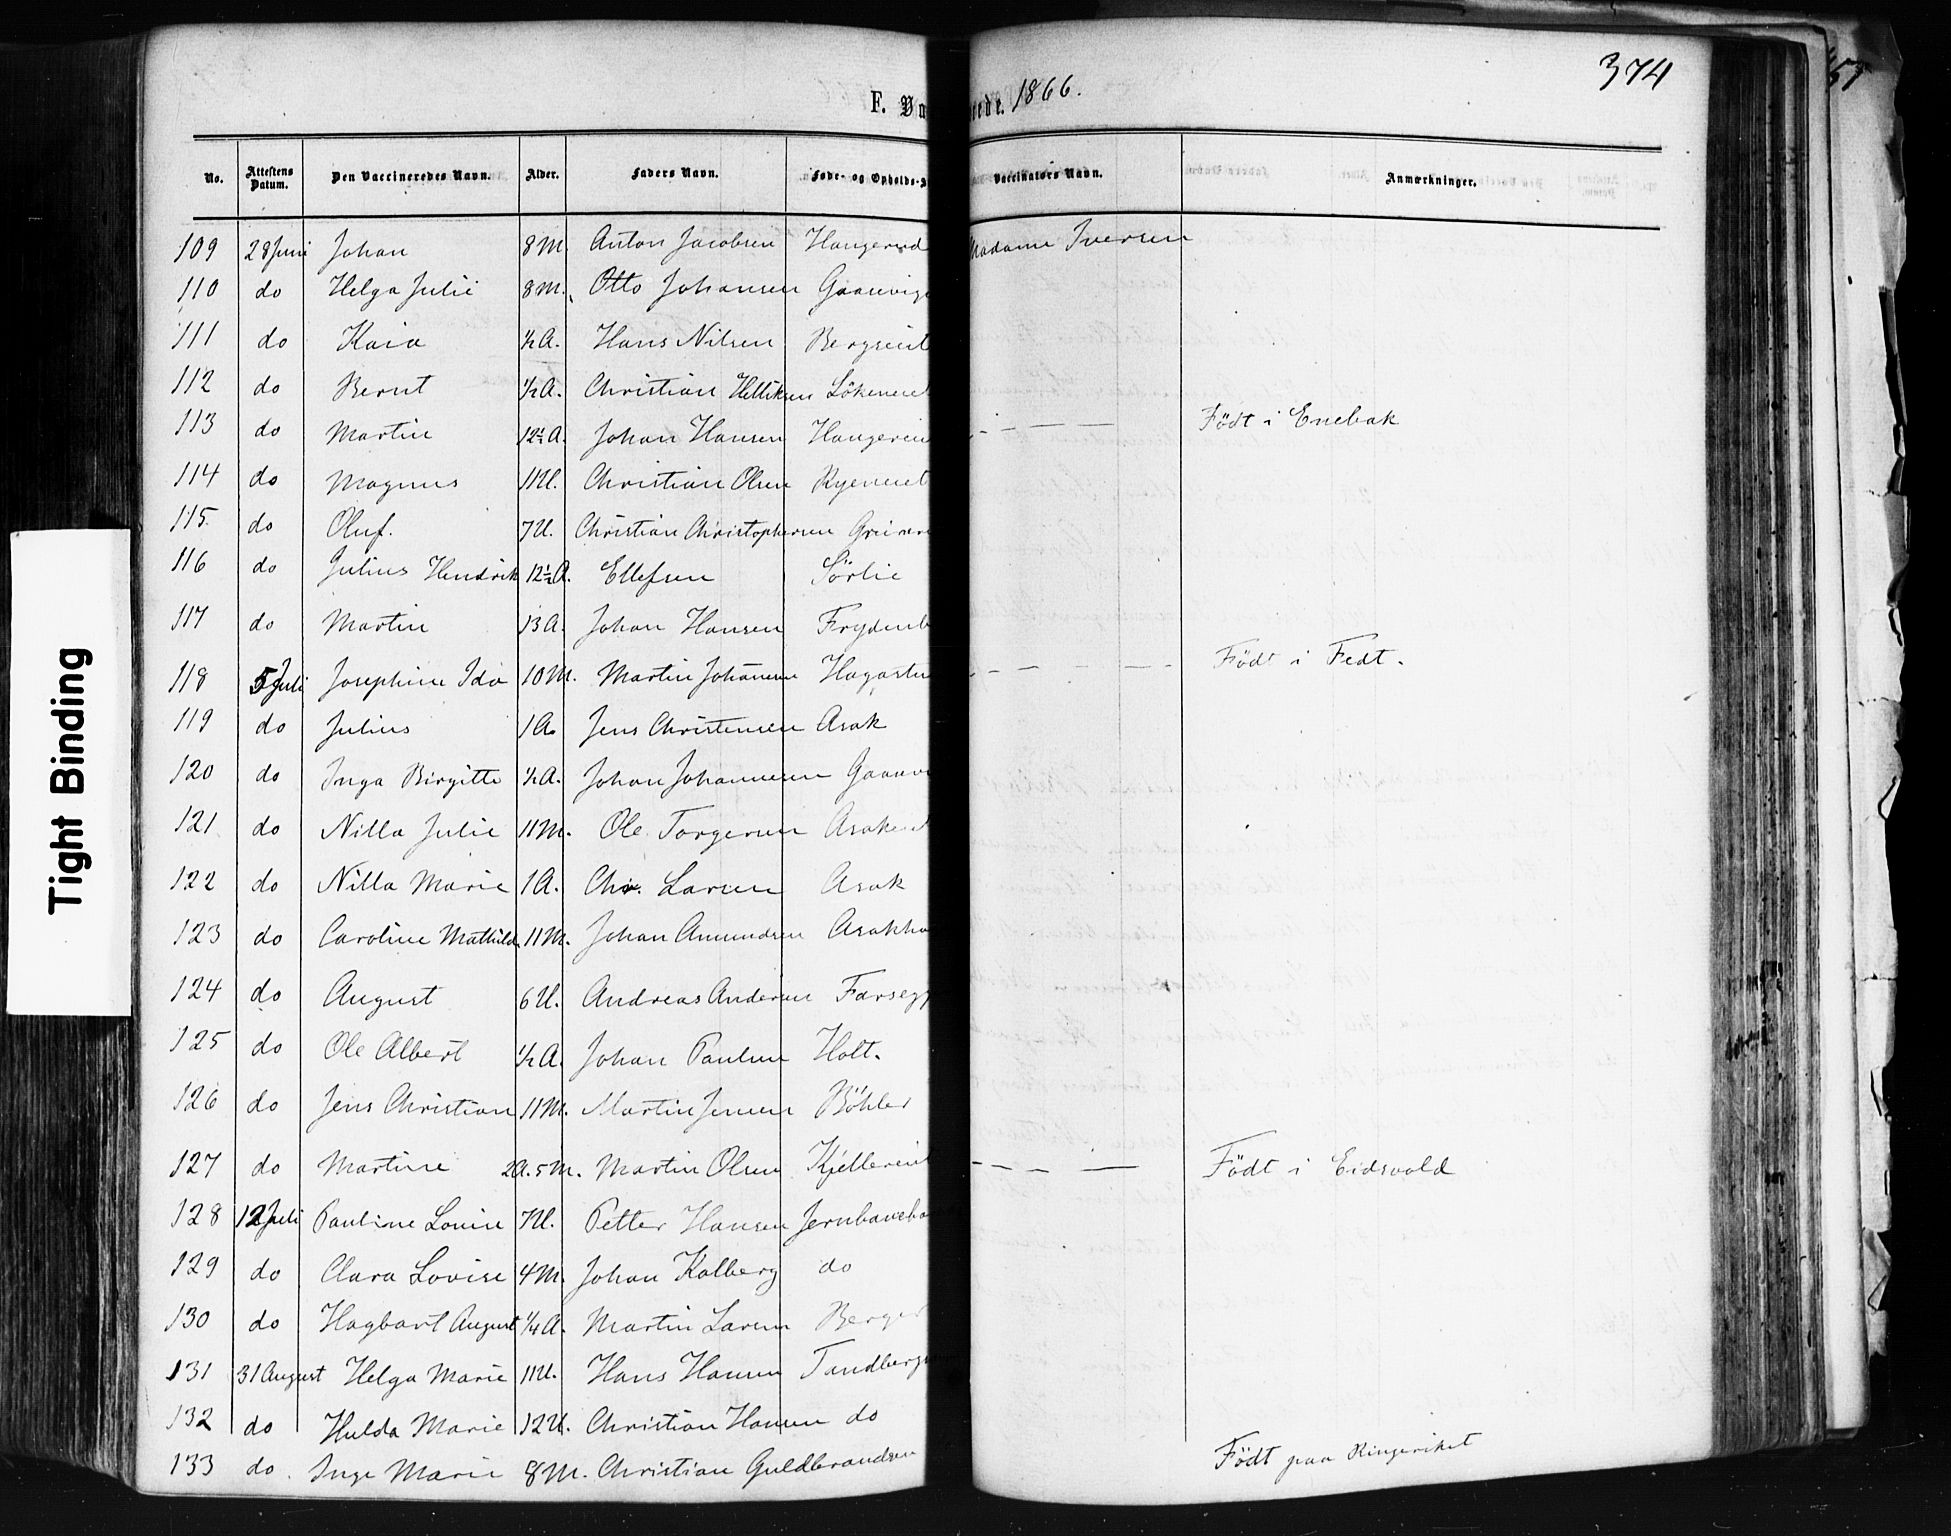 374
F. Va
rede. 1866.
No. Attestens Datum. Den Vaccineredes Navn. Alder. Faders Navn. Føde- og Opholds- Vaccinators Navn. Anmærkninger.
109 28 Juni Johan 8 M. Anton Jacobsen Haugerud Madame Iversen
110 do Helga Julie 8 M. Otto Johansen
111 do Kaia ½ A. Hans Nilsen Bergseiet
112 do Bernt ½ A. Christian Løkeneiet
113 do Martin 12½ A. Johan Hansen - - — Födt i Enebak
114 do Magnus 11 U. Christian Olsen Ryeneiet
115 do Oluf. 7 U. Christian Christophersen
116 do Julius Hendrik 12½ A. Ellefsen Sörlie
117 do Martin 13 A. Johan Hansen Frydenb
118 5 Juli Josephine Ida 10 M. Martin Johansen - — — - Födt i Fedt.
119 do Julius 1 A. Jens Christensen Asak
120 do Inga Birgitte ½ A. Johan Johannesen
121 do Nilla Julie 11 M. Ole Torgersen Asakeiet
122 do Nilla Marie 1 A. Chr. Larsen Asak
123 do Caroline Mathilde 11 M. Johan Amundsen
124 do August 6 U. Andreas Andersen Farsegg
125 do Ole Albert ½ A. Johan Paulsen Holt.
126 do Jens Christian 11 M. Martin Jensen Böhler
127 do Martine 2 A. 5 M. Martin Olsen Kjellereiet - - — — Födt i Eidsvold
128 12 Juli Pauline Louise 7 U. Petter Hansen
129 do Clara Lovise 4 M. Johan Kalberg do
130 do Hagbart August ¼ A. Martin Larsen Berger
131 31 August Helga Marie 11 U. Hans Hansen Tandberg
132 do Hulda Marie 12 U. Christian Hansen do
133 do. Inge Marie 8 M. Christian Guldbrandsen Födt paa Ringeriket
Tight Binding